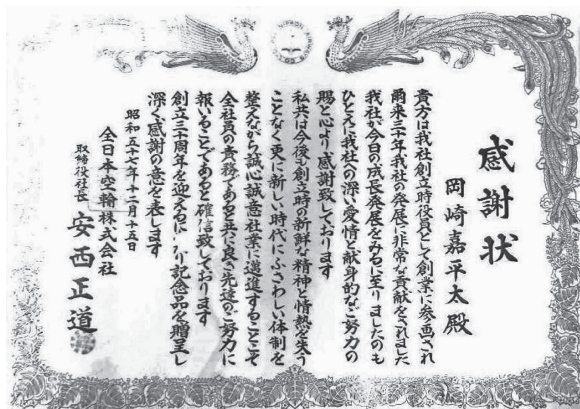 感謝状
岡崎嘉平太殿
貴方は我社創立時役員として創業に参画され
爾来三十年我社の発展に非常な貢献をされました
我社が今日の成長発展をみるに至りましたのも
ひとえに我社への深い愛情と献身的なご努力の
賜と心より感謝致しております
私共は今後も創立時の新鮮な精神と情熱を失う
ことなく更に新しい時代にふさわしい体制を
整えながら誠心誠意社業に邁進することこそ
全社員の責務であると共に良き先達のご努力に
報いることであると確信致しております
創立三十周年を迎えるに り記念品を贈呈し
深く感謝の意を表します
昭和五十七年十二月十五日
全日本空輸株式会社
取締役社長 安西正道